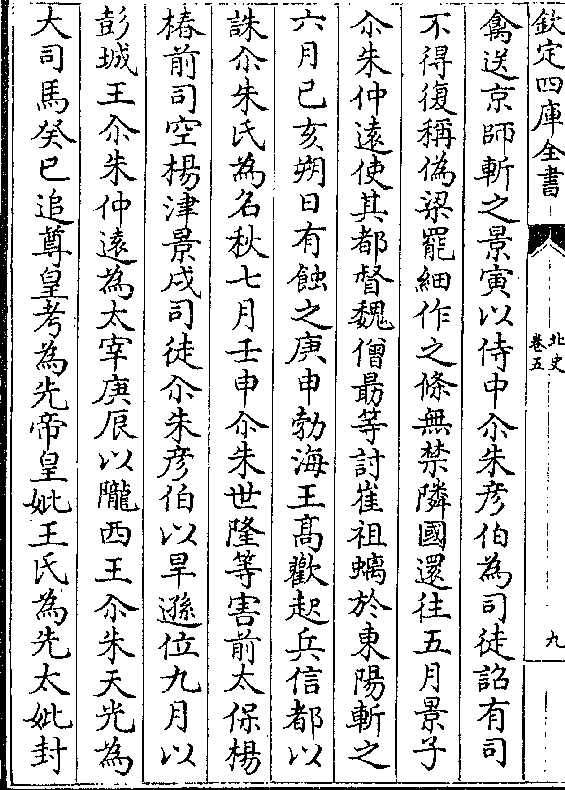 欽定四庫全書
北史
卷五
九
禽送京師斬之景寅以侍中尒朱彦伯為司徒詔有司
不得復稱偽梁罷細作之條無禁隣國還往五月景子
尒朱仲遠使其都督魏僧朂等討崔祖螭於東陽斬之
六月己亥朔日有蝕之庚申勃海王髙歡起兵信都以
誅尒朱氏為名秋七月壬申尒朱世隆等害前太保楊
椿前司空楊津景戌司徒尒朱彦伯以旱遜位九月以
彭城王尒朱仲遠為太宰庚辰以隴西王尒朱天光為
大司馬癸巳追尊皇考為先帝皇妣王氏為先太妣封